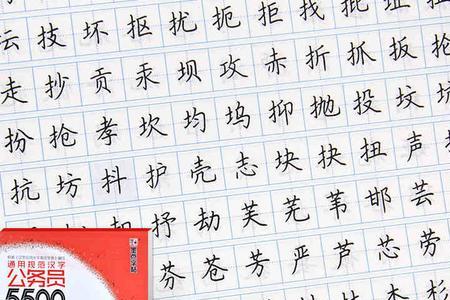 坛技坏抠扰扼拒找批址扯
走抄贡汞坝攻赤折抓扳抡
扮抢孝坎均坞抑抛投坟坑
抗坊抖护壳志块抉扭声
抒劫芙芜苇邯芸
芬苍芳严芦芯劳
墨点字帖
通用规范汉字
公务员
5500